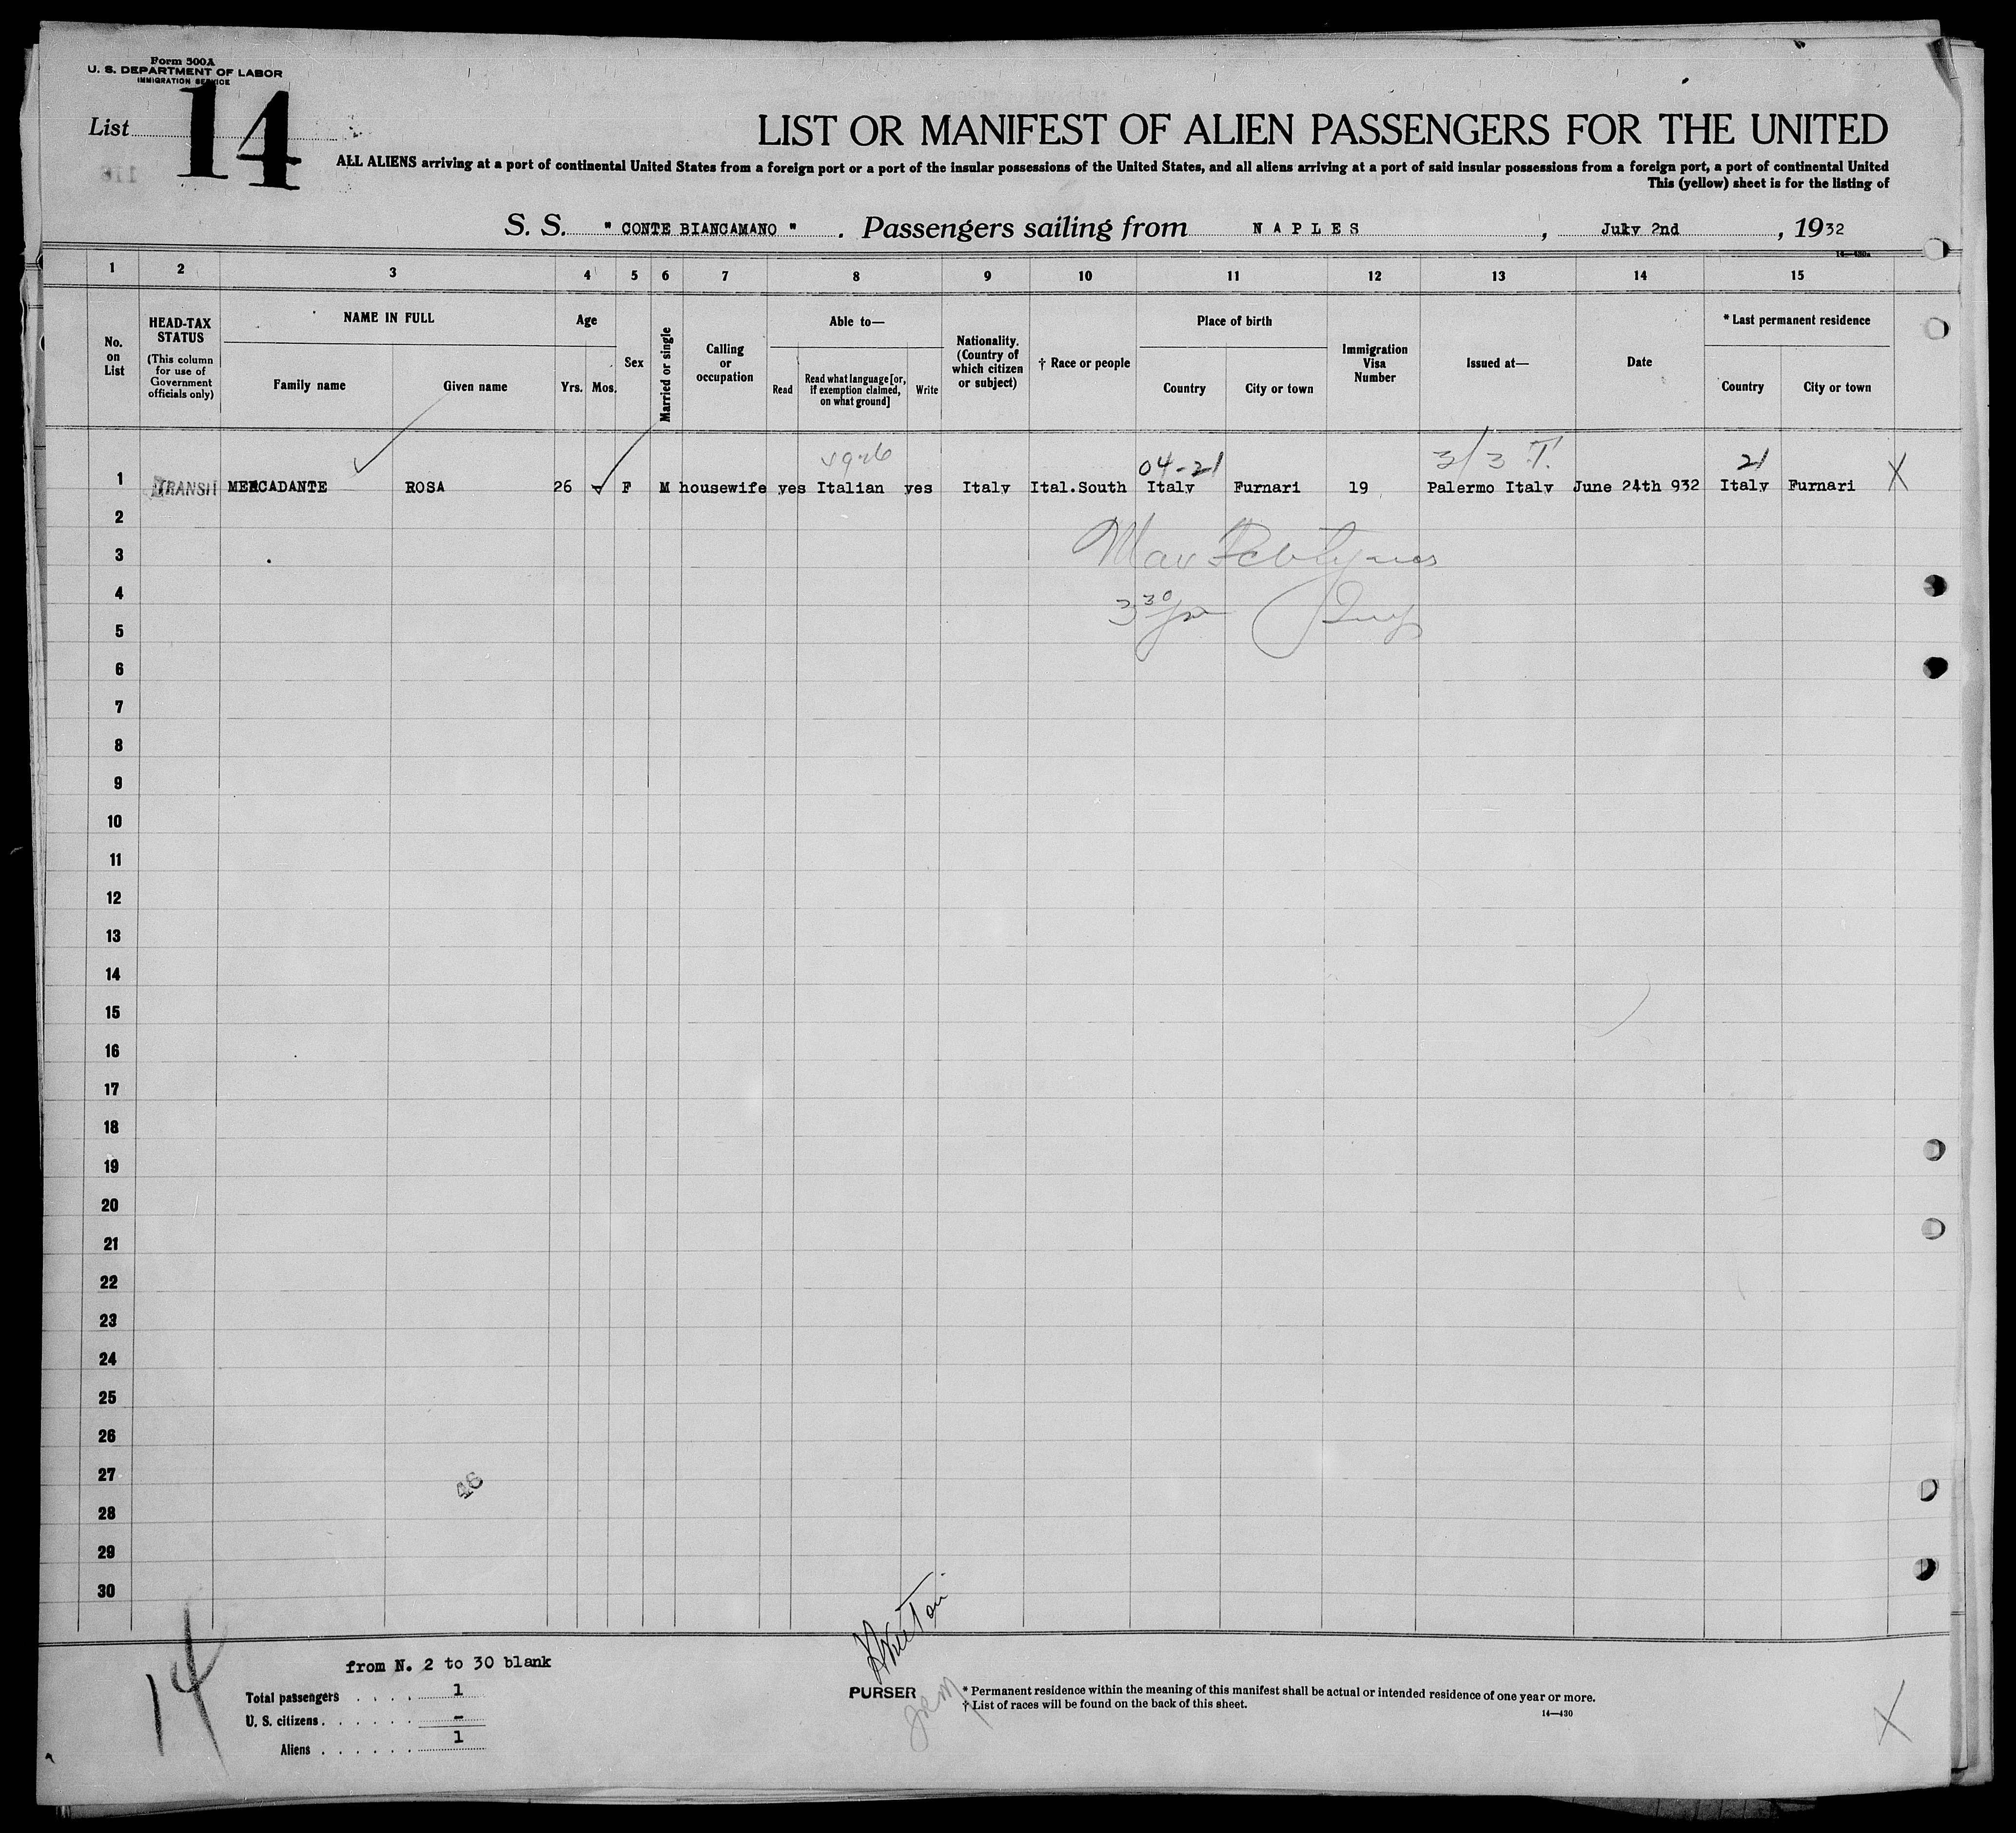 Form 500A
U. S. DEPARTMENT OF LABOR
IMMIGRATION SERVICE
List 14
LIST OR MANIFEST OF ALIEN PASSENGERS FOR THE UNITED
ALL ALIENS arriving at a port of continental United States from a foreign port or a port of the insular possessions of the United States, and all aliens arriving at a port of said insular possessions from a foreign port, a port of continental United
This (yellow) sheet is for the listing of
S. S. " CONTE BIANCAMANO " . Passengers sailing from N A P L E S , Juky 2nd , 1932
1 2 3 4 5 6 7 8 9 10 11 12 13 14 15
No. on List
HEAD-TAX STATUS
(This column for use of Government officials only)
NAME IN FULL
Family name Given name
Age
Yrs. Mos.
Sex
Married or single
Calling or occupation
Able to—
Read
Read what language [or, if exemption claimed, on what ground]
Write
Nationality. (Country of which citizen or subject)
† Race or people
Place of birth
Country City or town
Immigration Visa Number
Issued at—
Date
* Last permanent residence
Country City or town
04-21 3/3 T. 21
1 TRANSIT MERCADANTE ROSA 26 F M housewife yes Italian yes Italy Ital.South Italy Furnari 19 Palermo Italy June 24th 932 Italy Furnari X
2
3
4
3 30
5
6
7
8
9
10
11
12
13
14
15
16
17
18
19
20
21
22
23
24
25
26
27
48
28
29
30
14
from N. 2 to 30 blank
Total passengers . . . . 1
U. S. citizens . . . . . . -
Aliens . . . . . . 1
PURSER
* Permanent residence within the meaning of this manifest shall be actual or intended residence of one year or more.
† List of races will be found on the back of this sheet.
14—430
X